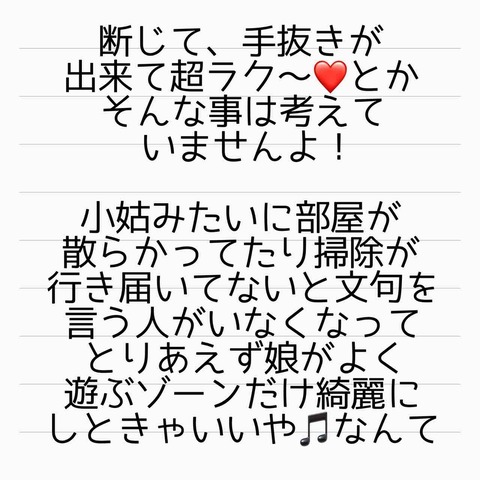 断じて、手抜きが
出来て超ラク〜❤️とか
そんな事は考えて
いませんよ！
小姑みたいに部屋が
散らかってたり掃除が
行き届いてないと文句を
言う人がいなくなって
とりあえず娘がよく
遊ぶゾーンだけ綺麗に
しときゃいいや🎵なんて